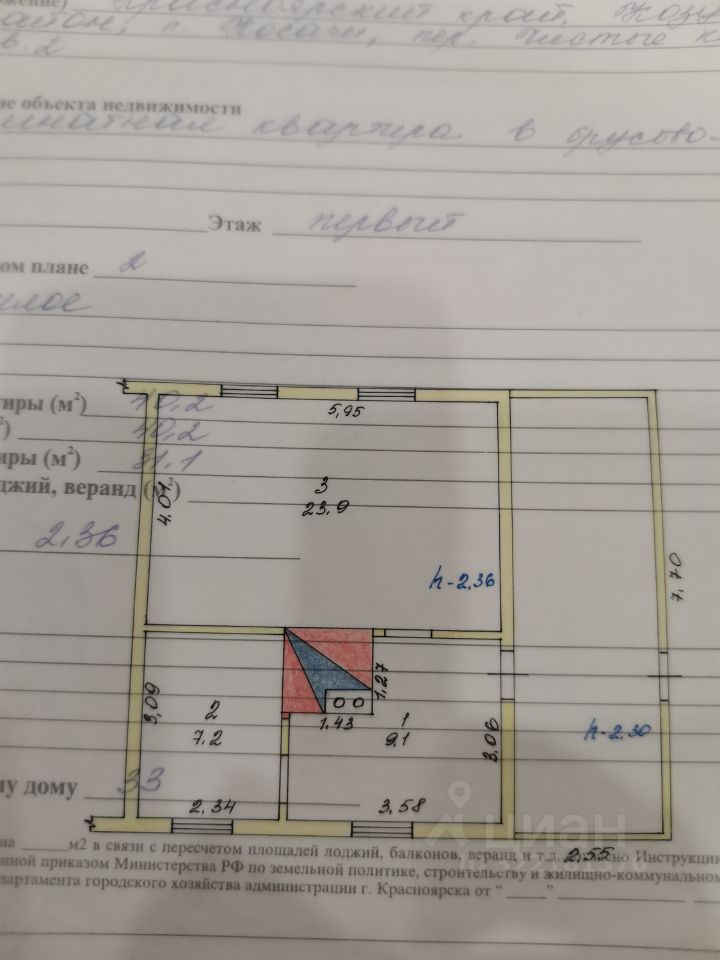 жение) Красноярский край, Козу
айон, п. Косачи, пер. Чистые к
в. 2
ие объекта недвижимости
мнатная квартира в брусово-
Этаж первый
ом плане 2
илое
тиры (м²) 40,2
²) 40,2
иры (м²) 31,1
джий, веранд (м²)
2,36
5,95
4,01
3
23.9
h-2,36
7,70
3,09
2
7.2
2,34
1,43
1,27
1
9,1
3,06
3,58
h-2.30
2,55
му дому 33
циан
на ____ м2 в связи с пересчетом площадей лоджий, балконов, веранд и т.д. но Инструкции
нной приказом Министерства РФ по земельной политике, строительству и жилищно-коммунальном
партамента городского хозяйства администрации г. Красноярска от “ ____ ”